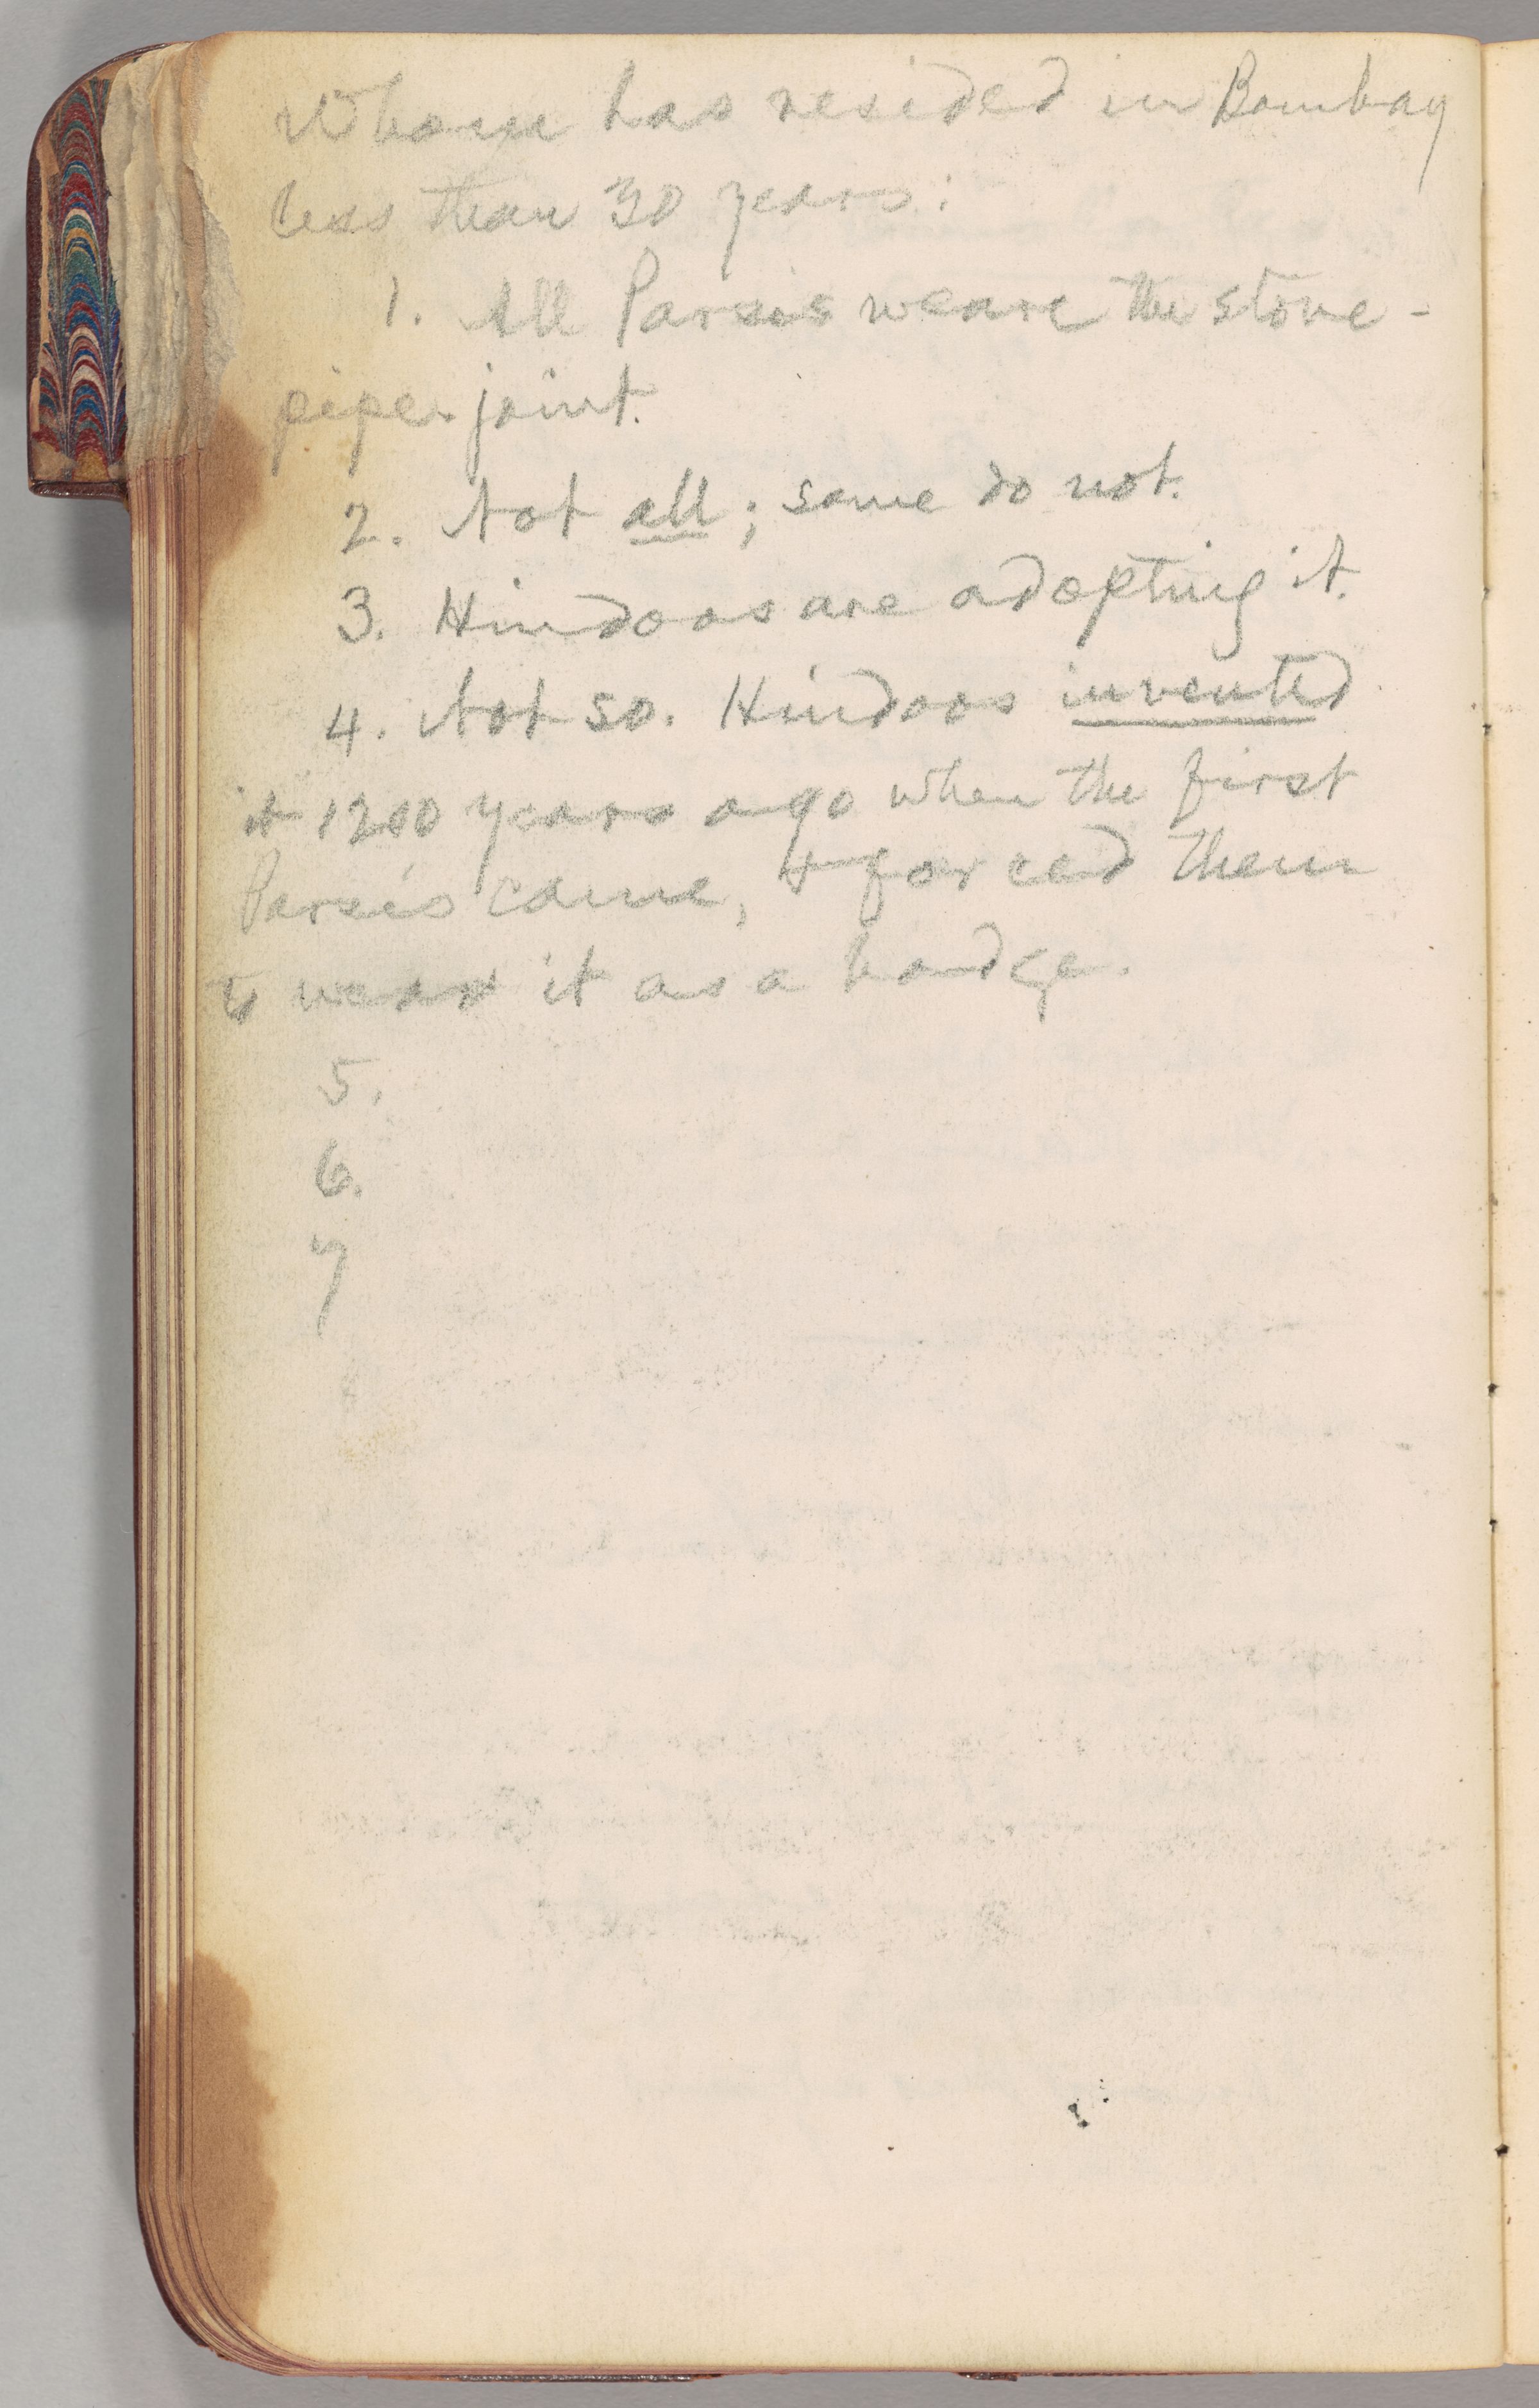 whom has resided in Bombay
less than 30 years:
1. All Parsis weare the stove-
pipe-joint.
2. Not all; some do not.
3. Hindoos are adopting it.
4. Not so. Hindoos invented
it 1200 years ago when the first
Parsis came, & forced them
to wear it as a badge.
5.
6.
7